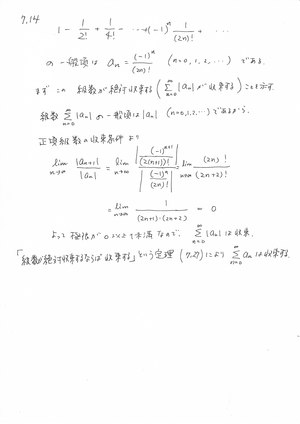 7.14
1 - 1/2! + 1/4! - … + (-1)^n 1/(2n)! + …
の一般項は a_n = (-1)^n/(2n)! (n=0,1,2,…) である.
まず この 級数が絶対収束する (∑_{n=0}^∞ |a_n| が収束する) ことを示す.
級数 ∑_{n=0}^∞ |a_n| の一般項は |a_n| (n=0,1,2…) であるから.
正項級数の収束条件より
lim_{n→∞} |a_{n+1}|/|a_n| = lim_{n→∞} |(-1)^{n+1}/(2(n+1))!| / |(-1)^n/(2n)!| = lim_{n→∞} (2n)!/(2n+2)!
= lim_{n→∞} 1/((2n+1)·(2n+2)) = 0
よって 極限が 0 以上 1 未満 なので, ∑_{n=0}^∞ |a_n| は収束.
「級数が絶対収束するならば収束する」という定理 (7.27) により ∑_{n=0}^∞ a_n は収束する.